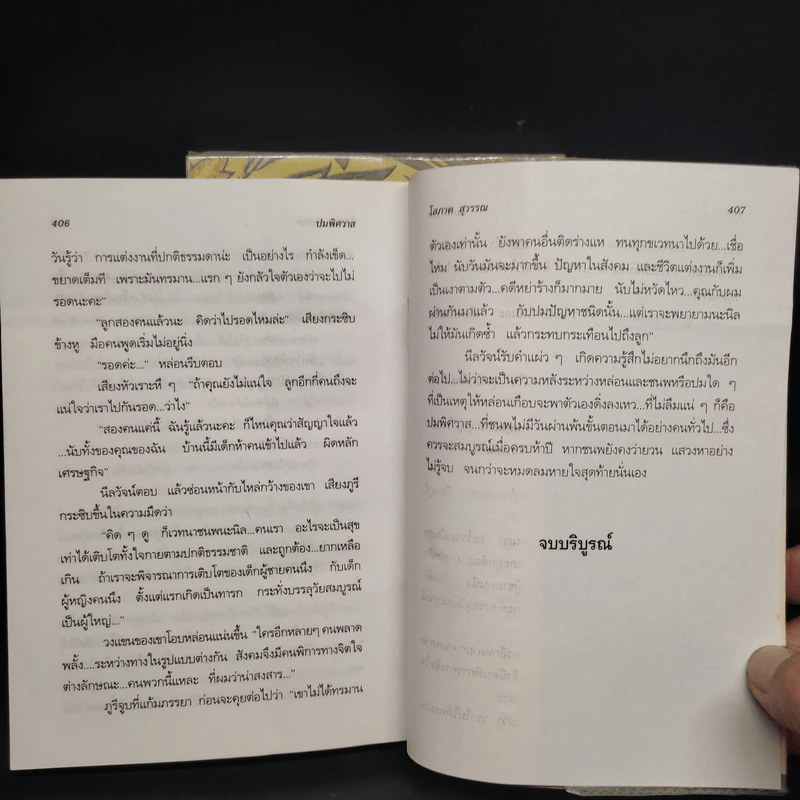 406
ปมพิศวาส
วันรู้ว่า การแต่งงานที่ปกติธรรมดาน่ะ เป็นอย่างไร กำลังเข็ด...
ขยาดเต็มที เพราะมันทรมาน...แรก ๆ ยังกลัวใจตัวเองว่าจะไปไม่
รอดนะคะ"
"ลูกสองคนแล้วนะ คิดว่าไปรอดไหมล่ะ" เสียงกระซิบ
ข้างหู มือคนพูดเริ่มไม่อยู่นิ่ง
"รอดค่ะ..." หล่อนรีบตอบ
เสียงหัวเราะหึ ๆ "ถ้าคุณยังไม่แน่ใจ ลูกอีกกี่คนถึงจะ
แน่ใจว่าเราไปกันรอด...ว่าไง"
"สองคนแค่นี้ ฉันรู้แล้วนะคะ ก็ไหนคุณว่าสัญญาใจแล้ว
...นับทั้งของคุณของฉัน บ้านนี้มีเด็กห้าคนเข้าไปแล้ว ผิดหลัก
เศรษฐกิจ"
นีลวัจน์ตอบ แล้วซ่อนหน้ากับไหล่กว้างของเขา เสียงภูรี
กระซิบขึ้นในความมืดว่า
"คิด ๆ ดู ก็เวทนาชนพนะนิล...คนเรา อะไรจะเป็นสุข
เท่าได้เติบโตทั้งใจกายตามปกติธรรมชาติ และถูกต้อง...ยากเหลือ
เกิน ถ้าเราจะพิจารณาการเติบโตของเด็กผู้ชายคนนึง กับเด็ก
ผู้หญิงคนนึง ตั้งแต่แรกเกิดเป็นทารก กระทั่งบรรลุวัยสมบูรณ์
เป็นผู้ใหญ่..."
วงแขนของเขาโอบหล่อนแน่นขึ้น "ใครอีกหลายๆ คนพลาด
พลั้ง....ระหว่างทางในรูปแบบต่างกัน สังคมจึงมีคนพิการทางจิตใจ
ต่างลักษณะ...คนพวกนี้แหละ ที่ผมว่าน่าสงสาร..."
ภูรีจูบที่แก้มภรรยา ก่อนจะคุยต่อไปว่า "เขาไม่ได้ทรมาน
โสภาค สุวรรณ
407
ตัวเองเท่านั้น ยังพาคนอื่นติดร่างแห ทนทุกขเวทนาไปด้วย...เชื่อ
ไหม นับวันมันจะมากขึ้น ปัญหาในสังคม และชีวิตแต่งงานก็เพิ่ม
เป็นเงาตามตัว...คดีหย่าร้างก็มากมาย นับไม่หวัดไหว...คุณกับผม
ผ่านกันมาแล้ว กับปมปัญหาชนิดนั้น...แต่เราจะพยายามนะนิล
ไม่ให้มันเกิดซ้ำ แล้วกระทบกระเทือนไปถึงลูก"
นีลวัจน์รับคำแผ่ว ๆ เกิดความรู้สึกไม่อยากนึกถึงมันอีก
ต่อไป...ไม่ว่าจะเป็นความหลังระหว่างหล่อนและชนพหรือปมใด ๆ
ที่เป็นเหตุให้หล่อนเกือบจะพาตัวเองดิ่งลงเหว...ที่ไม่ลืมแน่ ๆ ก็คือ
ปมพิศวาส...ที่ชนพไม่มีวันผ่านพ้นขั้นตอนมาได้อย่างคนทั่วไป...ซึ่ง
ควรจะสมบูรณ์เมื่อครบห้าปี หากชนพยังคงว่ายวน แสวงหาอย่าง
ไม่รู้จบ จนกว่าจะหมดลมหายใจสุดท้ายนั่นเอง
จบบริบูรณ์